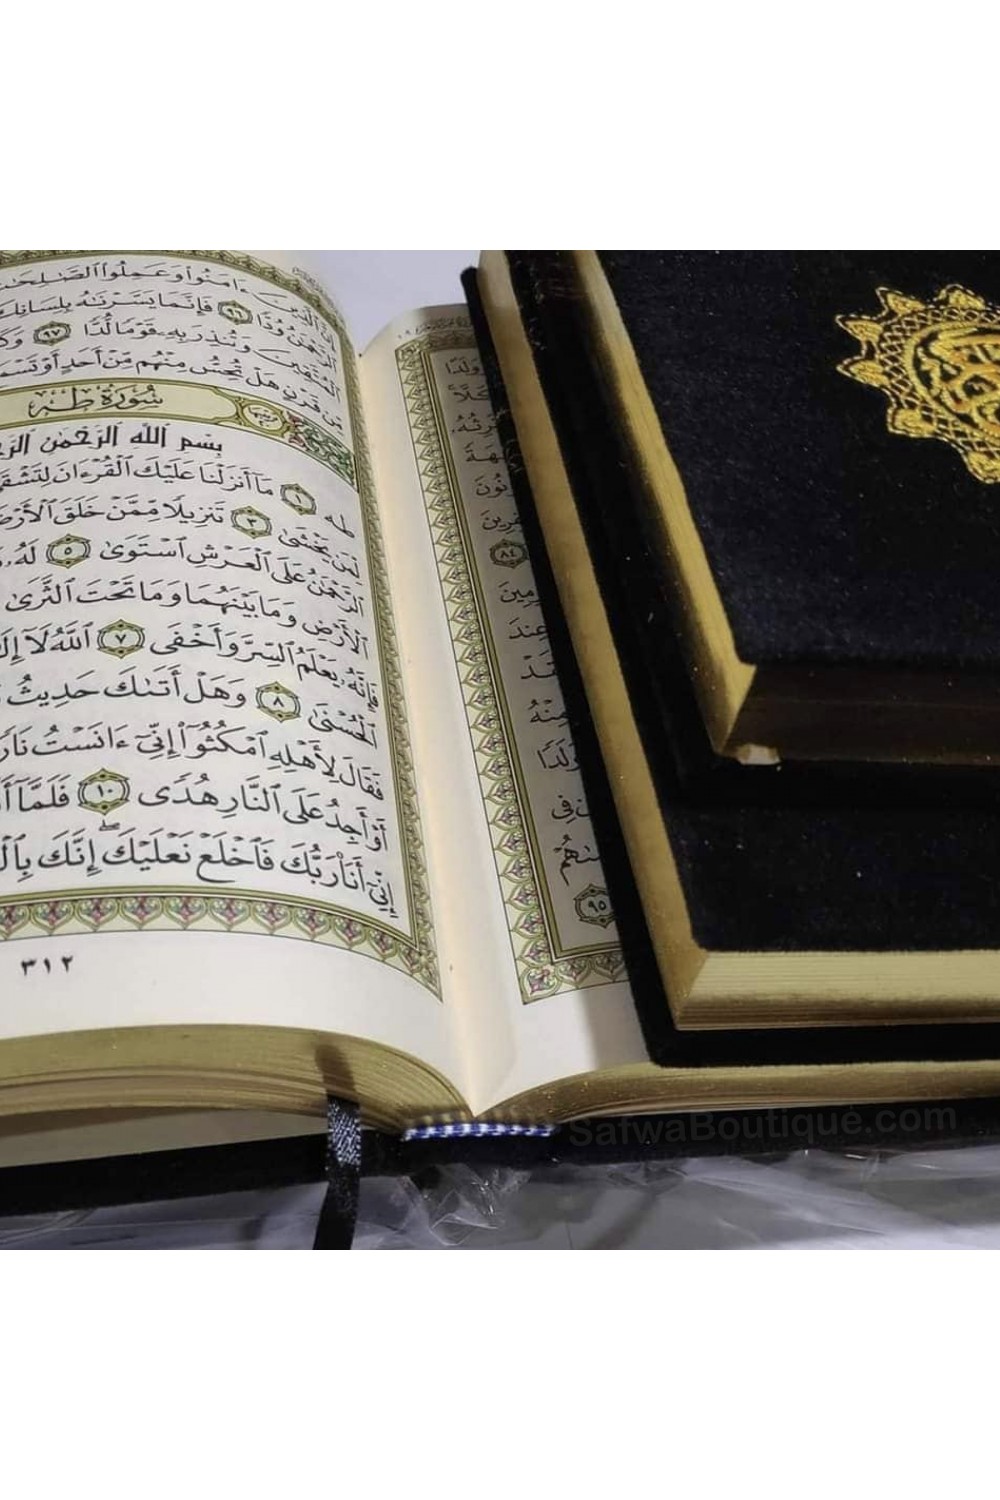 إِنَّ ٱلَّذِينَ ءَامَنُوا۟ وَعَمِلُوا۟ ٱلصَّـٰلِحَـٰتِ
ٱلرَّحْمَـٰنُ وُدًّا ٩٦ فَإِنَّمَا يَسَّرْنَـٰهُ بِلِسَانِكَ
ٱلْمُتَّقِينَ وَتُنذِرَ بِهِۦ قَوْمًا لُّدًّا ٩٧ وَكَ
مِّن قَرْنٍ هَلْ تُحِسُّ مِنْهُم مِّنْ أَحَدٍ أَوْ تَسْمَ
سُورَةُ طه
بِسْمِ ٱللَّهِ ٱلرَّحْمَـٰنِ ٱلرَّحِ
طه ١ مَآ أَنزَلْنَا عَلَيْكَ ٱلْقُرْءَانَ لِتَشْقَىٰ
لِّمَن يَخْشَىٰ ٣ تَنزِيلًا مِّمَّنْ خَلَقَ ٱلْأَرْضَ
ٱلرَّحْمَـٰنُ عَلَى ٱلْعَرْشِ ٱسْتَوَىٰ ٥ لَهُۥ
ٱلْأَرْضِ وَمَا بَيْنَهُمَا وَمَا تَحْتَ ٱلثَّرَىٰ
فَإِنَّهُۥ يَعْلَمُ ٱلسِّرَّ وَأَخْفَى ٧ ٱللَّهُ لَآ إِلَـ
ٱلْحُسْنَىٰ ٨ وَهَلْ أَتَىٰكَ حَدِيثُ
فَقَالَ لِأَهْلِهِ ٱمْكُثُوٓا۟ إِنِّىٓ ءَانَسْتُ نَارً
أَوْ أَجِدُ عَلَى ٱلنَّارِ هُدًى ١٠ فَلَمَّآ أَ
إِنِّىٓ أَنَا۠ رَبُّكَ فَٱخْلَعْ نَعْلَيْكَ ۖ إِنَّكَ بِٱلْ
٣١٢
وَلَدًا
كَلَّا
رِثُهُۥ
هَةً
ونُونَ
فِرِينَ
٨٤
رِمِينَ
عِندَ
قَدْ
مِنْهُ
وَلَدًا
فِى
٩٥
SafwaBoutique.com